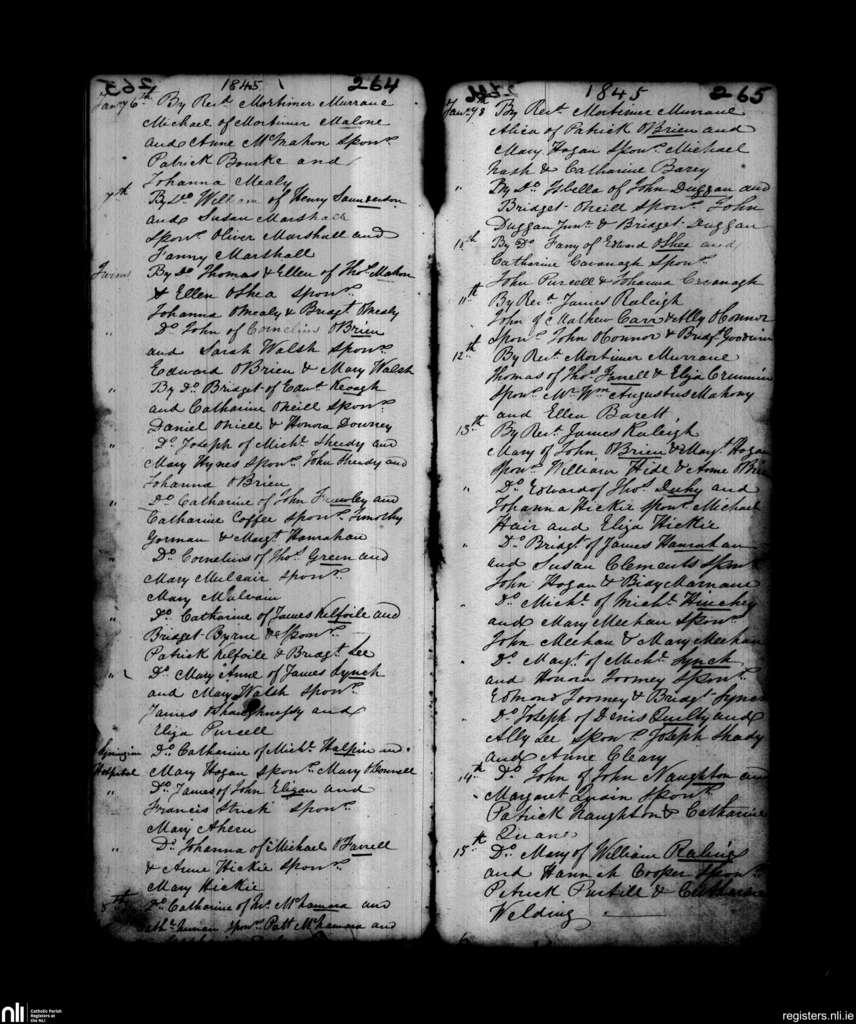 1845 264
Jany 6th By Revd. Mortimer Murrane
Michael of Mortimer Malone
and Anne McMahon Sponrs.
Patrick Bourke and
Johanna Mealy
7th By Do. William of Henry Saunderson
and Susan Marshall
Sponrs. Oliver Marshall and
Fanny Marshall
By Do Thomas & Ellen of Thos. Mahon
& Ellen OShea Sponrs.
Johanna OMealy & Bridgt OMealy
" Do. John of Cornelius OBrien
and Sarah Walsh Sponrs.
Edward OBrien & Mary Walsh
" By Do. Bridget of Edwd. Keough
and Catharine ONeill Sponrs.
Daniel ONeill & Honora Downey
" Do. Joseph of Michl. Sheedy and
Mary Hynes Sponrs. John Sheedy and
Johanna OBrien
" Do. Catharine of John and
Catharine Coffee Sponrs. Timothy
Gorman & Margt Hanrahan
" Do. Cornelius of Thos. Green and
Mary Mulcair Sponrs.
Mary Mulcair
" Do. Catharine of James Kelfoile and
Bridget Byrne & Sponrs.
Patrick Kelfoile & Bridgt. Lee
" Do. Mary Anne of James Lynch
and Mary Walsh Sponrs.
James OShaughnessy and
Eliza Purcell
Lying in Do. Catharine of Michl. Halpin and
Hospital Mary Hogan Sponrs. Mary ODonnell
" Do. James of John Eligan and
Francis Sponrs.
Mary Ahern
" Do. Johanna of Michael OFarrell
& Anne Hickie Sponrs.
Mary Hickie
8th Do. Catharine of McNamara and
Sponrs. Patt McNamara and
1845 265
Jany 8th By Revd. Mortimer Murrane
Alice of Patrick OBrien and
Mary Hogan Sponrs. Michael
Nash & Catharine Barry
" By Do. Isbella of John Duggan and
Bridget ONeill Sponrs. John
Duggan Junr. & Bridget Duggan
By Do. Fany of Edward OShea and
Catharine Cavanagh Sponrs.
John Purcell & Johanna Cavanagh
11th By Revd. James Raleigh
John of Mathew Carr & Ally OConnor
Sponrs. John OConnor & Bridgt. Goodwin
12th By Revd. Mortimer Murrane
Thomas of Thos. Farrell & Eliza
Sponrs. Mr. Wm. Augustus Mahony
and Ellen Barett
13th By Revd. James Raleigh
Mary of John OBrien & Margt. Hogan
Sponrs. William Hide & Anne OBrien
" Do. Edward of Thos. and
Johanna Hickie Sponrs. Michael
Hair and Eliza Hickie
" Do. Bridgt. of James Hanrahan
and Susan Clements Sponrs.
John Hogan & Bidy Marnane
" Do. Michl. of Michl. Hinchey
and Mary Meehan Sponrs.
John Meehan & Mary Meehan
" Do. Margt. of Michl. Lynch
and Honora Toomey Sponrs.
Edmond Toomey & Bridgt Lynch
" Do. Joseph of Denis Quilty and
Ally Lee Sponrs. Joseph Shady
and Anne Cleary
14th Do. John of John Naughton and
Margaret Quain Sponrs.
Patrick Naughton & Catharine
Quane
15th Do. Mary of William
and Hannah Cooper Sponrs.
Patrick Purtill & Catharine
Welding
nli Catholic Parish
Registers at
the NLI
registers.nli.ie